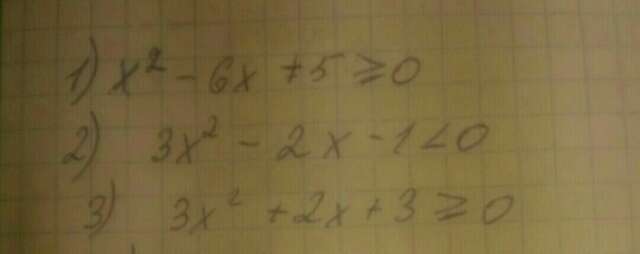 1) x² - 6x + 5 ≥ 0
2) 3x² - 2x - 1 < 0
3) 3x² + 2x + 3 ≥ 0